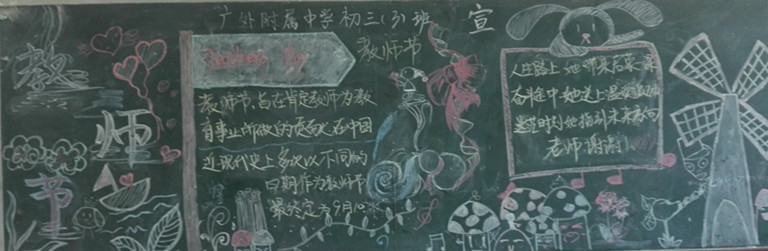 广外附属中学初三(3)班
宣
教师节
教师节
Teachers' Day
教师节,旨在肯定教师为教
育事业所做的贡献。在中国
近现代史上多次以不同的
日期作为教师节
最终定为9月10
人生路上她
奋斗中她送上温
她指引未来方向
老师谢谢